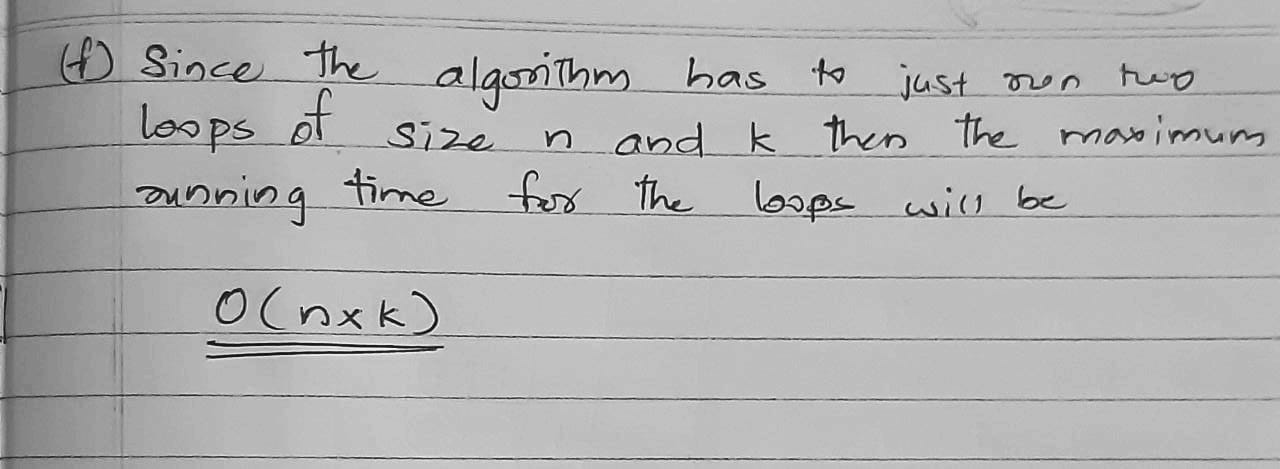 (f) Since the algorithm has to just run two
loops of size n and k then the maximum
running time for the loops will be
O(n×k)